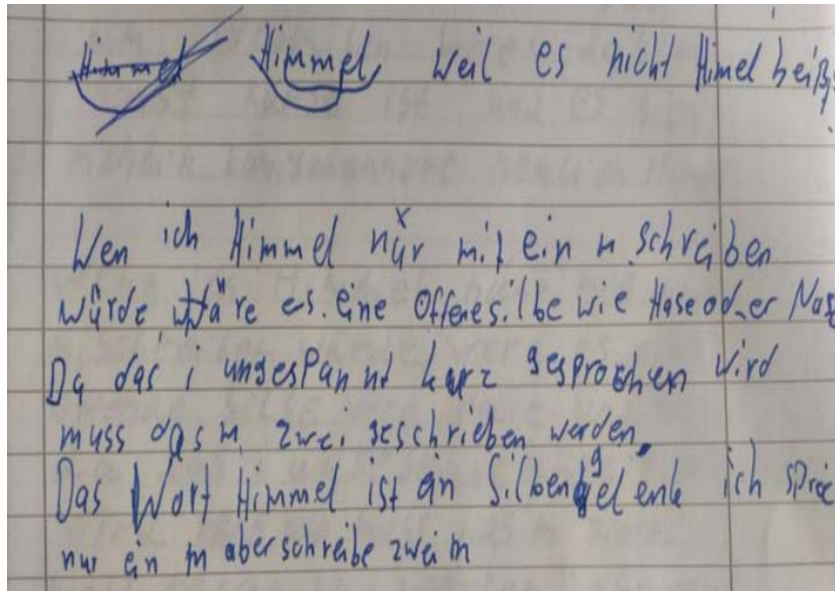 Himmel Himmel weil es nicht Himel heiß
Wen ich Himmel nur mit ein m schreiben
würde wäre es eine Offenesilbe wie Hase oder
Da das i ungespannt kurz gesprochen wird
muss das m zwei geschrieben werden.
Das Wort Himmel ist ein Silbengelenk ich
nur ein m aber schreibe zwei m